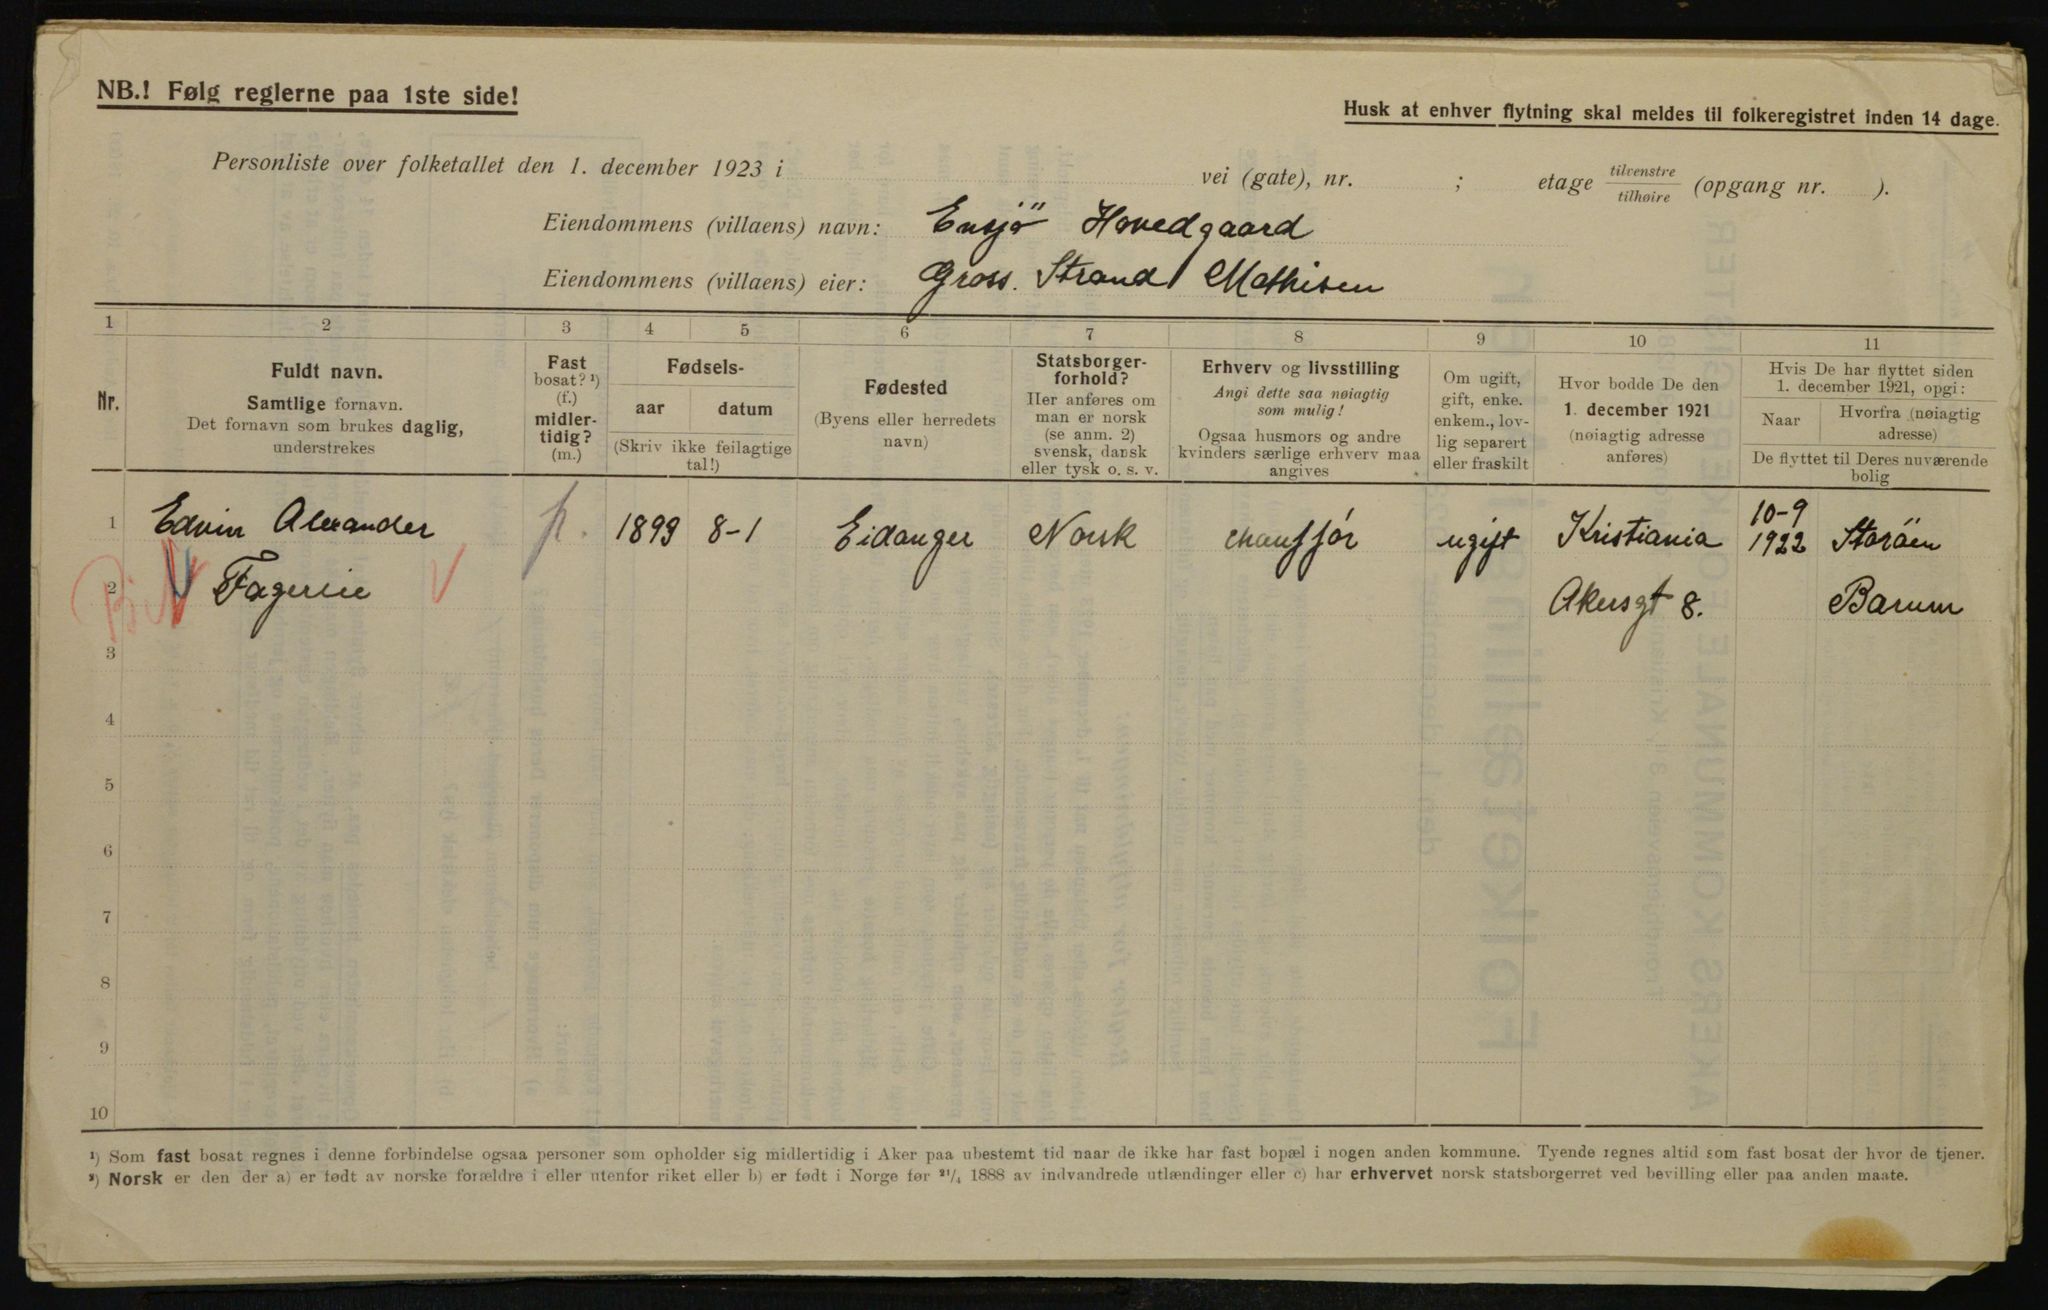 NB.! Følg reglerne paa 1ste side!
Husk at enhver flytning skal meldes til folkeregistret inden 14 dage.
Personliste over folketallet den 1. december 1923 i vei (gate), nr. ; etage tilvenstre tilhøire (opgang nr. ).
Eiendommens (villaens) navn: Ensjö Hovedgaard
Eiendommens (villaens) eier: Gross. Strand Mathisen
1 2 3 4 5 6 7 8 9 10 11
Nr.
Fuldt navn.
Samtlige fornavn.
Det fornavn som brukes daglig,
understrekes
Fast
bosat? ¹)
(f.)
midler-
tidig?
(m.)
Fødsels-
aar datum
(Skriv ikke feilagtige
tal!)
Fødested
(Byens eller herredets
navn)
Statsborger-
forhold?
Her anføres om
man er norsk
(se anm. 2)
svensk, dansk
eller tysk o. s. v.
Erhverv og livsstilling
Angi dette saa nøiagtig
som mulig!
Ogsaa husmors og andre
kvinders særlige erhverv maa
angives
Om ugift,
gift, enke.
enkem., lov-
lig separert
eller fraskilt
Hvor bodde De den
1. december 1921
(nøiagtig adresse
anføres)
Hvis De har flyttet siden
1. december 1921, opgi:
Naar
Hvorfra (nøiagtig
adresse)
De flyttet til Deres nuværende
bolig
1 Edvin Alexander 1899 8-1 Eidanger Norsk chauffør ugift Kristiania 10-9 1922 Storöen
2 Akersgt 8. Bærum
3
4
5
6
7
8
9
10
¹) Som fast bosat regnes i denne forbindelse ogsaa personer som opholder sig midlertidig i Aker paa ubestemt tid naar de ikke har fast bopæl i nogen anden kommune. Tyende regnes altid som fast bosat der hvor de tjener.
²) Norsk er den der a) er født av norske forældre i eller utenfor riket eller b) er født i Norge før ²¹/₄ 1888 av indvandrede utlændinger eller c) har erhvervet norsk statsborgerret ved bevilling eller paa anden maate.